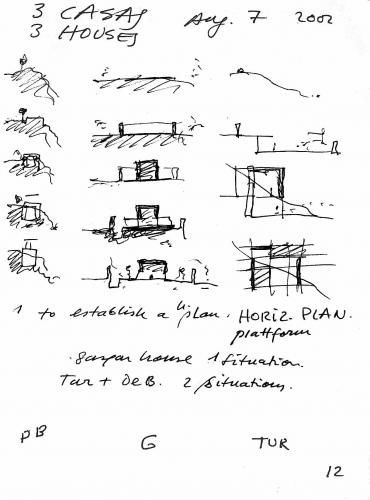 3 CASAS Aug. 7 2002
3 HOUSES
1 to establish a h. plan. HORIZ. PLAN.
plattform
. gaspar house 1 situation.
Tur + De B. 2 situations.
DB G TUR
12